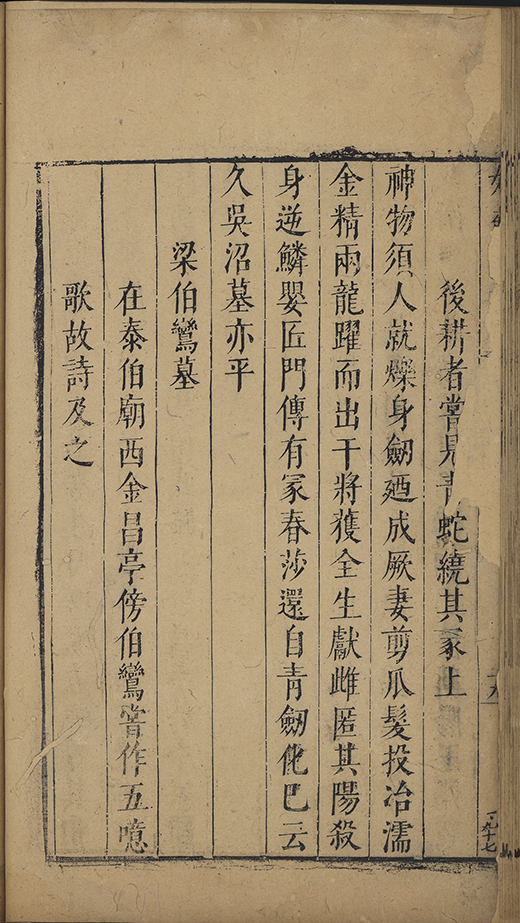 後耕者嘗見青蛇繞其冢上
神物須人就爍身劒廼成厥妻剪爪髮投冶濡
金精兩龍躍而出干將獲全生獻雌匿其陽殺
身逆鱗嬰匠門傳有冢春莎還自青劒化巳云
久吳沼墓亦平
梁伯鸞墓
在泰伯廟西金昌亭傍伯鸞嘗作五噫
歌故詩及之